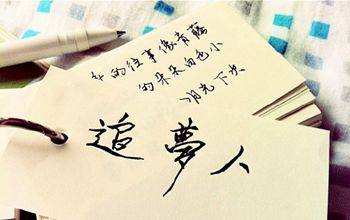 年的往事像青藤
的朵朵白色小
月光下尖
追夢人